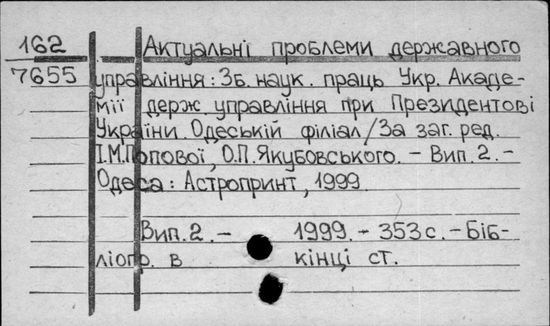 162
7655
Актуальні проблеми державного
управління: Зб. наук. праць Укр. Акаде-
мії держ управління при Президентові
України. Одеській філіал / За заг. ред.
І.М.Попової, О.П.Якубовського. – Вип. 2. –
Одеса: Астропринт, 1999.
Вип. 2. – 1999. – 353 с. – Біб-
ліогр. в кінці ст.